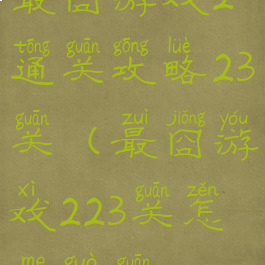 最囧游戏2
tōng guān gōng lüè
通关攻略23
guān zuì jiǒng yóu
关（最囧游
xì guān zěn
戏223关怎
me guò guān